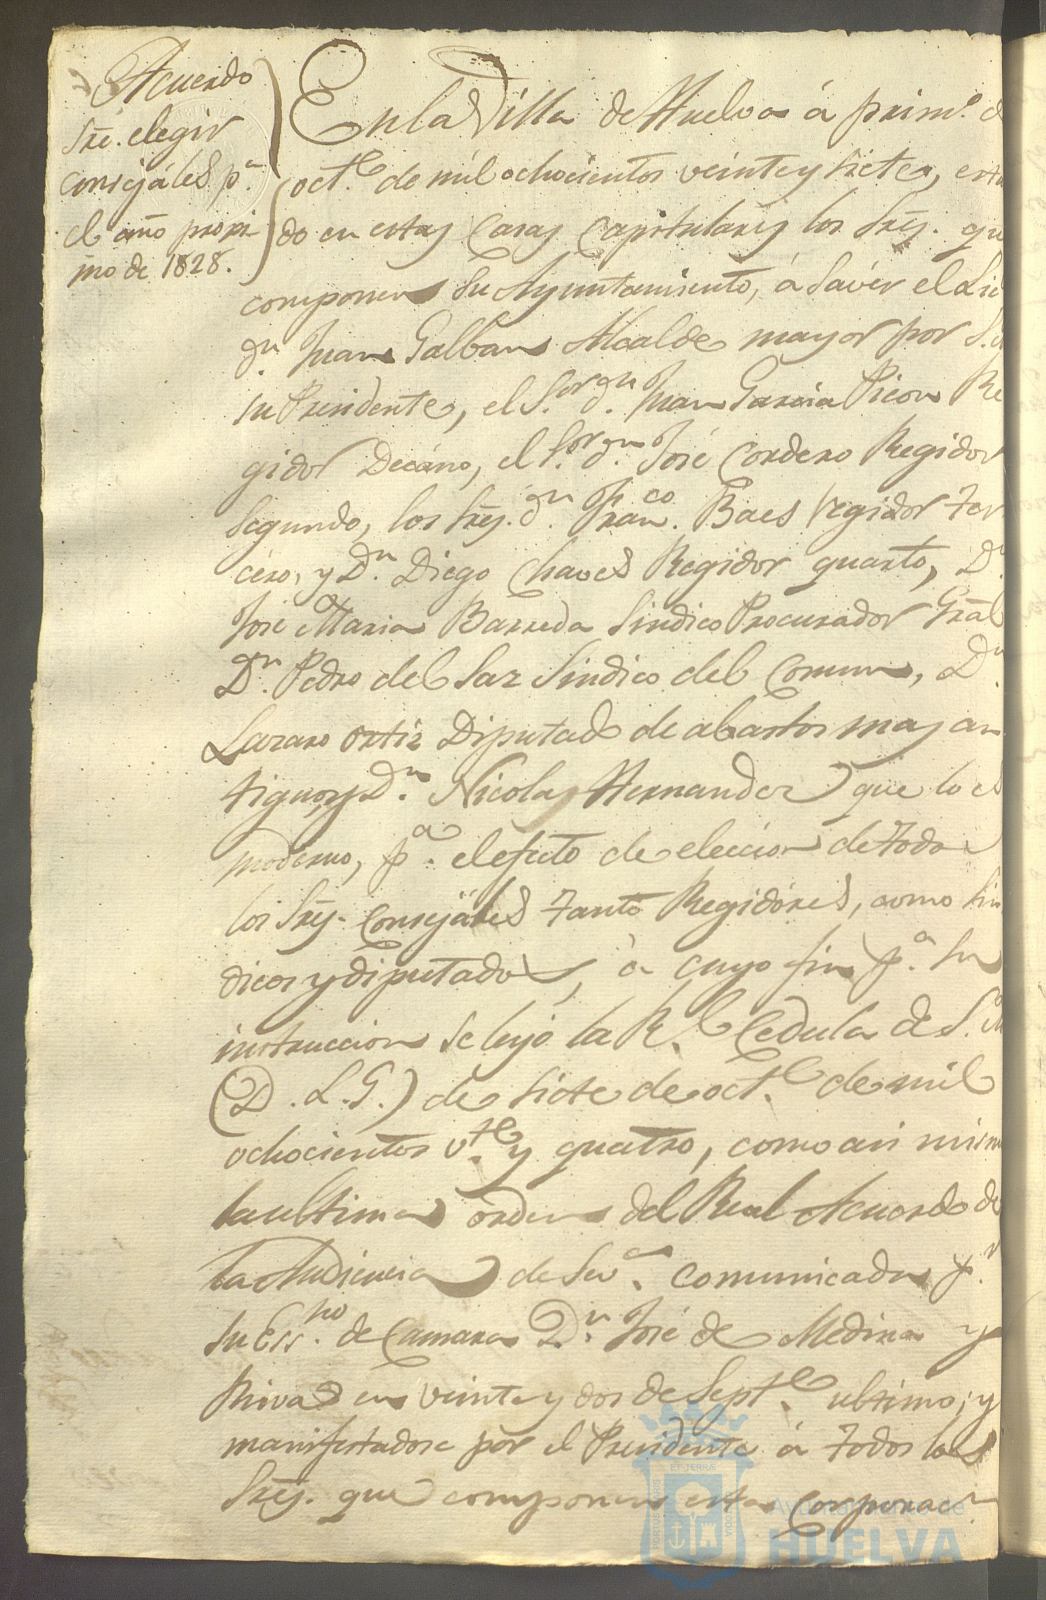 Acuerdo
sre. elegir
consejáles pa.
el año proxi
mo de 1828.
En la Villa de Huelva á primo. d
octe. de mil ochocientos veinte y siete, estan
do en estas Casas Capitulares los Sres. qu
componen su Ayuntamiento, á savér el Lic
dn. Juan Galban Alcalde mayor por S.
su Presidente, el Sor. dn. Juan Garcia Picon Re
gidor Decáno, el Sor. dn. José Cordero Regidor
Segundo, los Sres. dn. Franco. Baes regidor Ter
cero, y Dn. Diego Chaves Regidor quarto, Dn.
José Maria Barreda Sindico Procurador Gral
Dn. Pedro del Saz Sindico del Comun, Dn.
Lazaro Ortiz Diputado de abastos mas an
tiguo, y Dn. Nicolas Hernandez que lo es
moderno, pa. el efecto de eleccion de todos
los Sres. Consejáles tanto Regidóres, como Sin
dicos y diputados, á cuyo fin pa. su
instruccion se leyo la Rl. Cedula de S.
(D. L. G.) de siete de octe. de mil
ochocientos vte. y quatro, como asi mism
la ultima orden del Real Acuerdo de
la Audiencia de Seva. comunicada pr.
su Essno. de Camara Dn. José de Medina y
Rivas en veinte y dos de Septe. ultimo; y
manifestadose por el Presidente á todos los
Sres. que componen esta Corporacn.
Ayuntamiento de
HUELVA